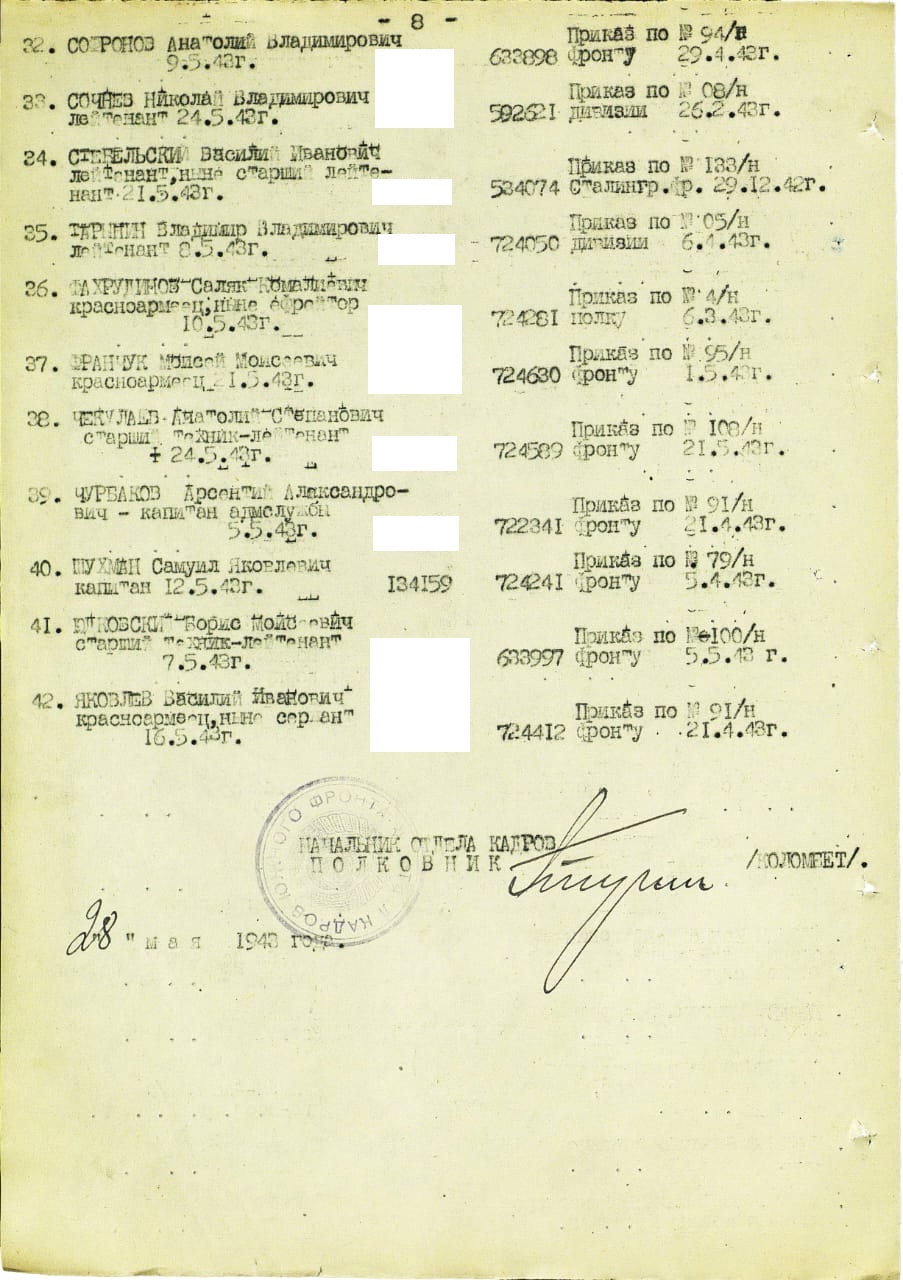 - 8 -
32. СОФРОНОВ Анатолий Владимирович Приказ по № 94/н
9.5.43г. 633898 фронту 29.4.43г.
33. СОЧНЕВ Николай Владимирович Приказ по № 08/н
лейтенант 24.5.43г. 592621 дивизии 26.2.43г.
34. СТЕБЕЛЬСКИЙ Василий Иванович Приказ по № 133/н
лейтенант,ныне старший лейте-
нант 21.5.43г. 534074 Сталингр.фр. 29.12.42г.
35. Владимир Владимирович Приказ по № 05/н
лейтенант 8.5.43г. 724050 дивизии 6.4.43г.
36. ФАХРУДИНОВ Саляк Приказ по № 4/н
красноармеец,ныне ефрейтор 724281 полку 6.3.43г.
10.5.43г.
37. ФРАНЧУК Моисей Моисеевич Приказ по № 95/н
красноармеец 21.5.43г. 724630 фронту 1.5.43г.
38. ЧЕКУЛАЕВ Анатолий Степанович Приказ по № 108/н
старший техник-лейтенант 724589 фронту 21.5.43г.
+ 24.5.43г.
39. ЧУРБАКОВ Арсентий Александро- Приказ по № 91/н
вич - капитан адмслужбы 722341 фронту 21.4.43г.
5.5.43г.
40. ШУХМАН Самуил Яковлевич Приказ по № 79/н
капитан 12.5.43г. 134159 724241 фронту 5.4.43г.
41. Борис Моисеевич Приказ по № 100/н
старший техник-лейтенант 633997 фронту 5.5.43 г.
7.5.43г.
42. ЯКОВЛЕВ Василий Иванович Приказ по № 91/н
красноармеец,ныне сержант 724412 фронту 21.4.43г.
16.5.43г.
НАЧАЛЬНИК ОТДЕЛА КАДРОВ
ПОЛКОВНИК /КОЛОМЕЕТ/.
"28" мая 1943 года.
ФРОНТА
КАДРОВ